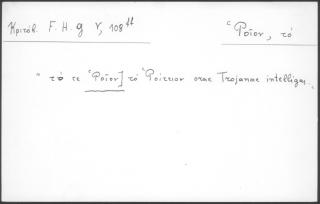 Κριτόβ. F. H. g V, 108ᶠᶠ
Ῥοῖον, τό
" τό τε Ῥοῖον] τό Ῥοίτειον orae Trojanae intelligas.